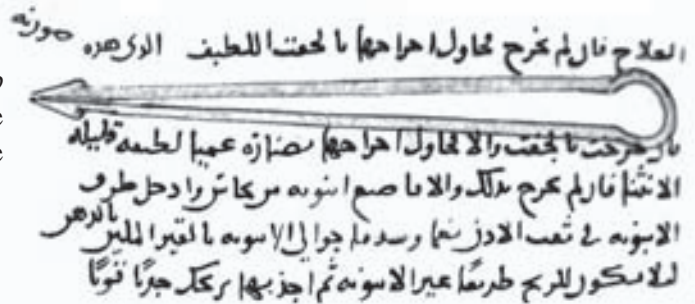 العلاج فان لم تخرج فحاول اخراجها بالجفت اللطيف الذى هذه صورته
فان خرجت بالجفت والا فحاول اخراجها بصنارة عميا لطيفة قليلة
الانثنا فان لم تخرج بذلك والا فاصنع انبوبه من نحاس وادخل طرف
الانبوبه فى ثقب الاذن نعما وسد ما حوالى الانبوبه بالقير الملين بالدهن
ليلا يكون للريح طريقا غير الانبوبه ثم اجذبها بريحك جذبا قويا